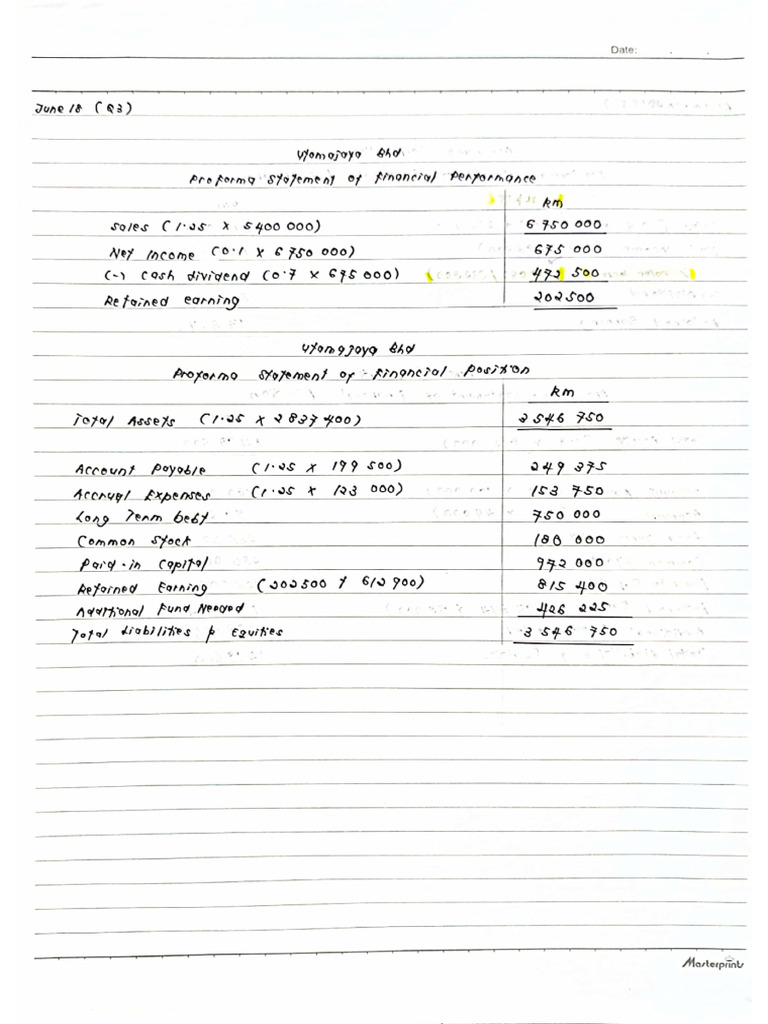 Date: . .
June 18 (Q3)
Utamajaya Bhd
Proforma Statement of Financial Performance
RM
Sales (1.25 x 5400 000) 6 750 000
Net Income (0.1 x 6 750 000) 675 000
(-) Cash dividend (0.7 x 675 000) 472 500
Retained earning 202500
Utamajaya Bhd
Proforma Statement of Financial Position
RM
Total Assets (1.25 x 2 837 400) 3 546 750
Account Payable (1.25 x 199 500) 249 375
Accrual Expenses (1.25 x 123 000) 153 750
Long Term Debt 750 000
Common Stock 180 000
Paid-in Capital 972 000
Retained Earning (202500 + 612 900) 815 400
Additional Fund Needed 426 225
Total Liabilities & Equities 3 546 750
Masterprint